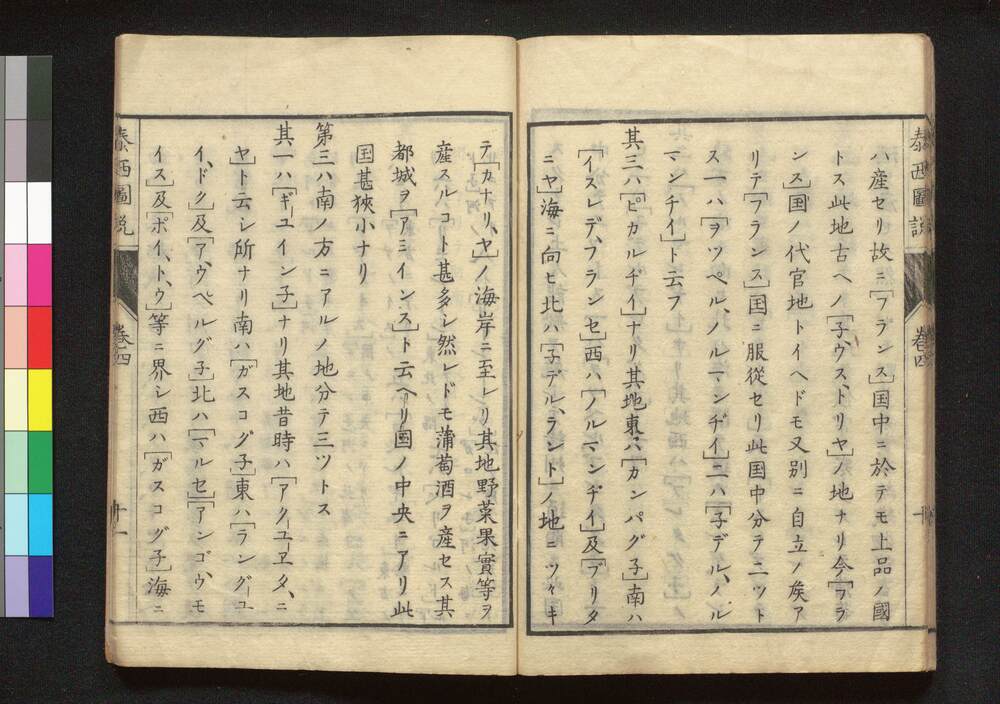 泰西圖説
巻四
十
ハ産セリ故ニ「フランス」国中ニ於テモ上品ノ國
トス此地古ヘノ「子ウス、トリヤ」ノ地ナリ今「フラ
ンス」国ノ代官地トイヘドモ又別ニ自立ノ矦ア
リテ「フランス」国ニ服從セリ此国中分テ二ツト
ス一ハ「ヲツペル、ノルマンヂイ」二ハ「子デル、ノル
マンチイ」ト云フ
其三ハ「ピカルヂイ」ナリ其地東ハ「カンパグ子」南ハ
「イスレデ、フランセ」西ハ「ノルマンヂイ」及「ブリタ
ニヤ」海ニ向ヒ北ハ「子デル、ラント」ノ地ニツヾキ
テ「カナリ、ヤ」ノ海岸ニ至レリ其地野菜果實等ヲ
産スルコト甚多シ然レドモ蒲萄酒ヲ産セス其
都城ヲ「アミインス」ト云ヘリ国ノ中央ニアリ此
国甚狹小ナリ
第三ハ南ノ方ニアルノ地分テ三ツトス
其一ハ「ギユイン子」ナリ其地昔時ハ「アクーユヱタ、ニ
ヤ」ト云シ所ナリ南ハ「ガスコグ子」東ハ「ラングーユ
イ、ドク」及「ア、ウベルグ子」北ハ「マルセ」「アンゴウ、モ
イス」及「ポイ、ト、ウ」等ニ界シ西ハ「ガスコグ子」海ニ
泰西圖説
巻四
十一